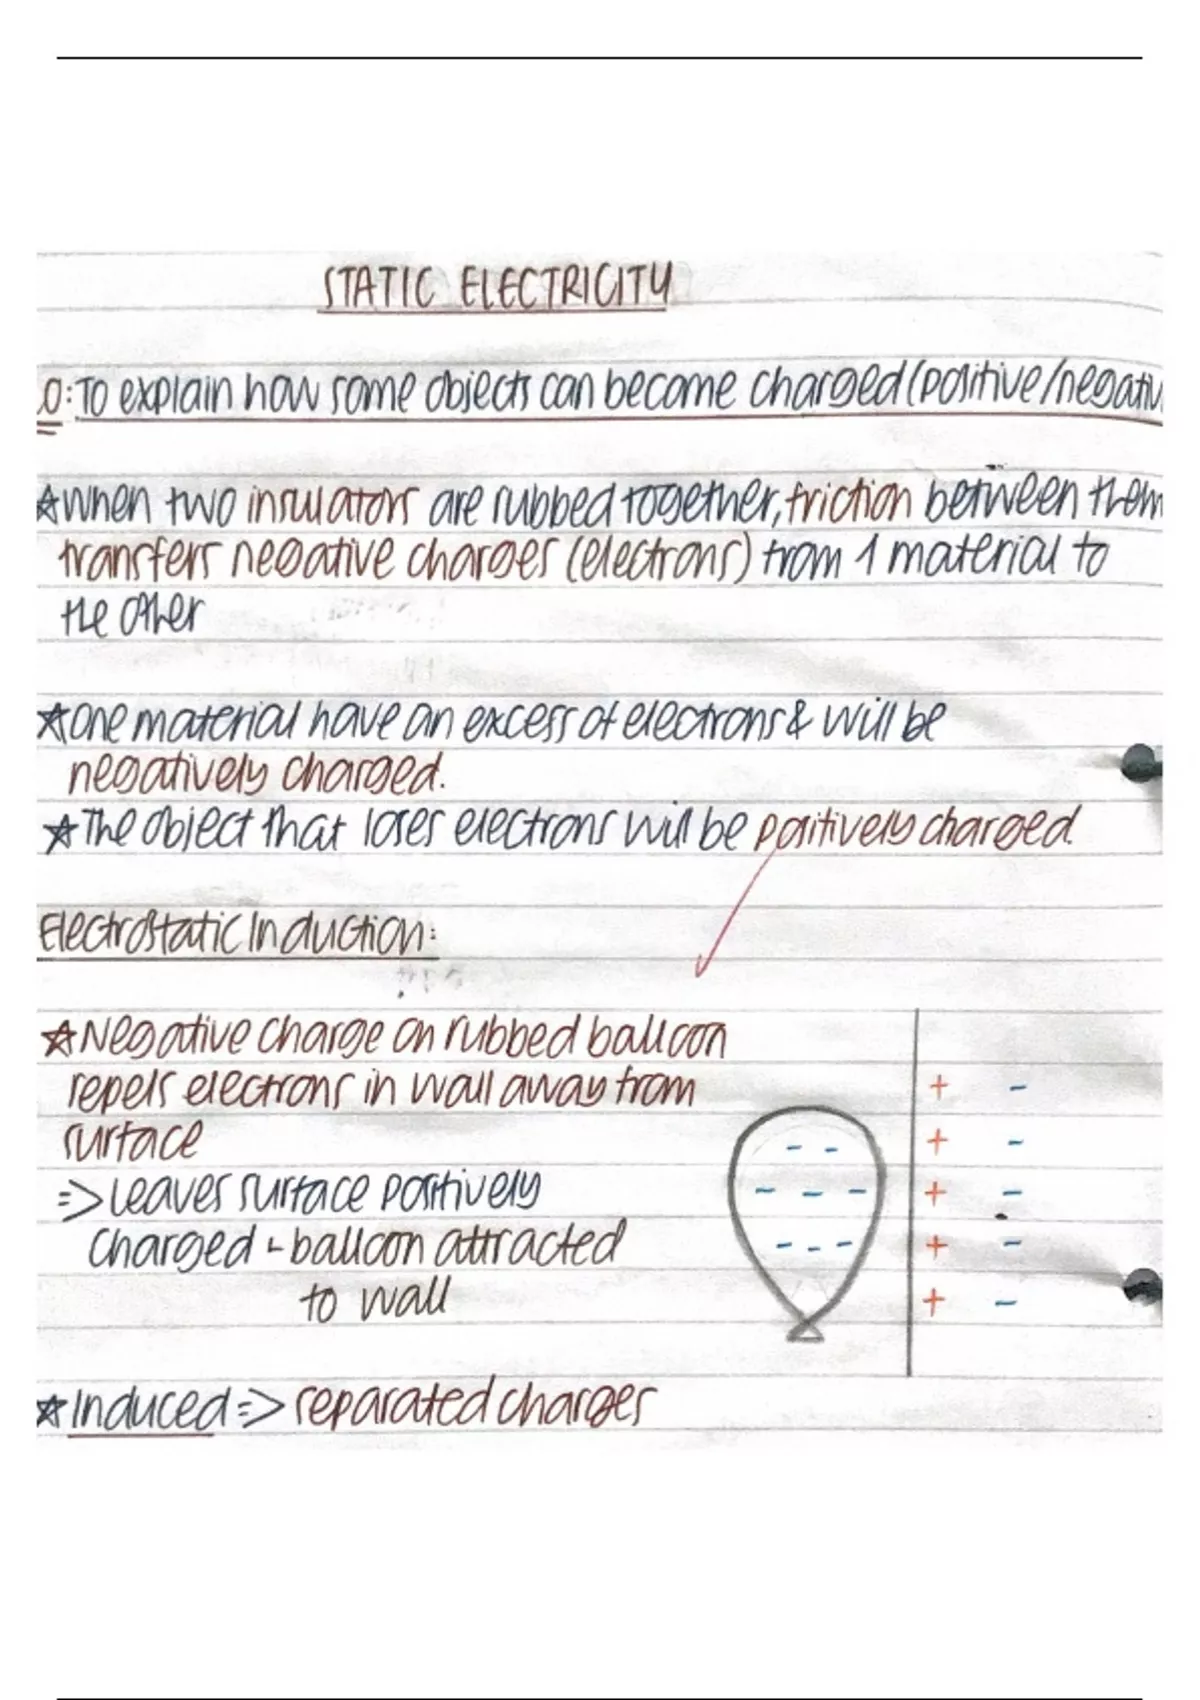 STATIC ELECTRICITY
O: To explain how some objects can become charged (positive/negativ
☆ When two insulators are rubbed together, friction between them
transfers negative charges (electrons) from 1 material to
the other
☆ One material have an excess of electrons & will be
negatively charged.
☆ The object that loses electrons will be positively charged.
Electrostatic Induction:
☆ Negative charge on rubbed balloon
repels electrons in wall away from
surface
=> Leaves surface positively
charged & balloon attracted
to wall
+ -
- - + -
- - - + -
- - - + -
+ -
☆ Induced => separated charges